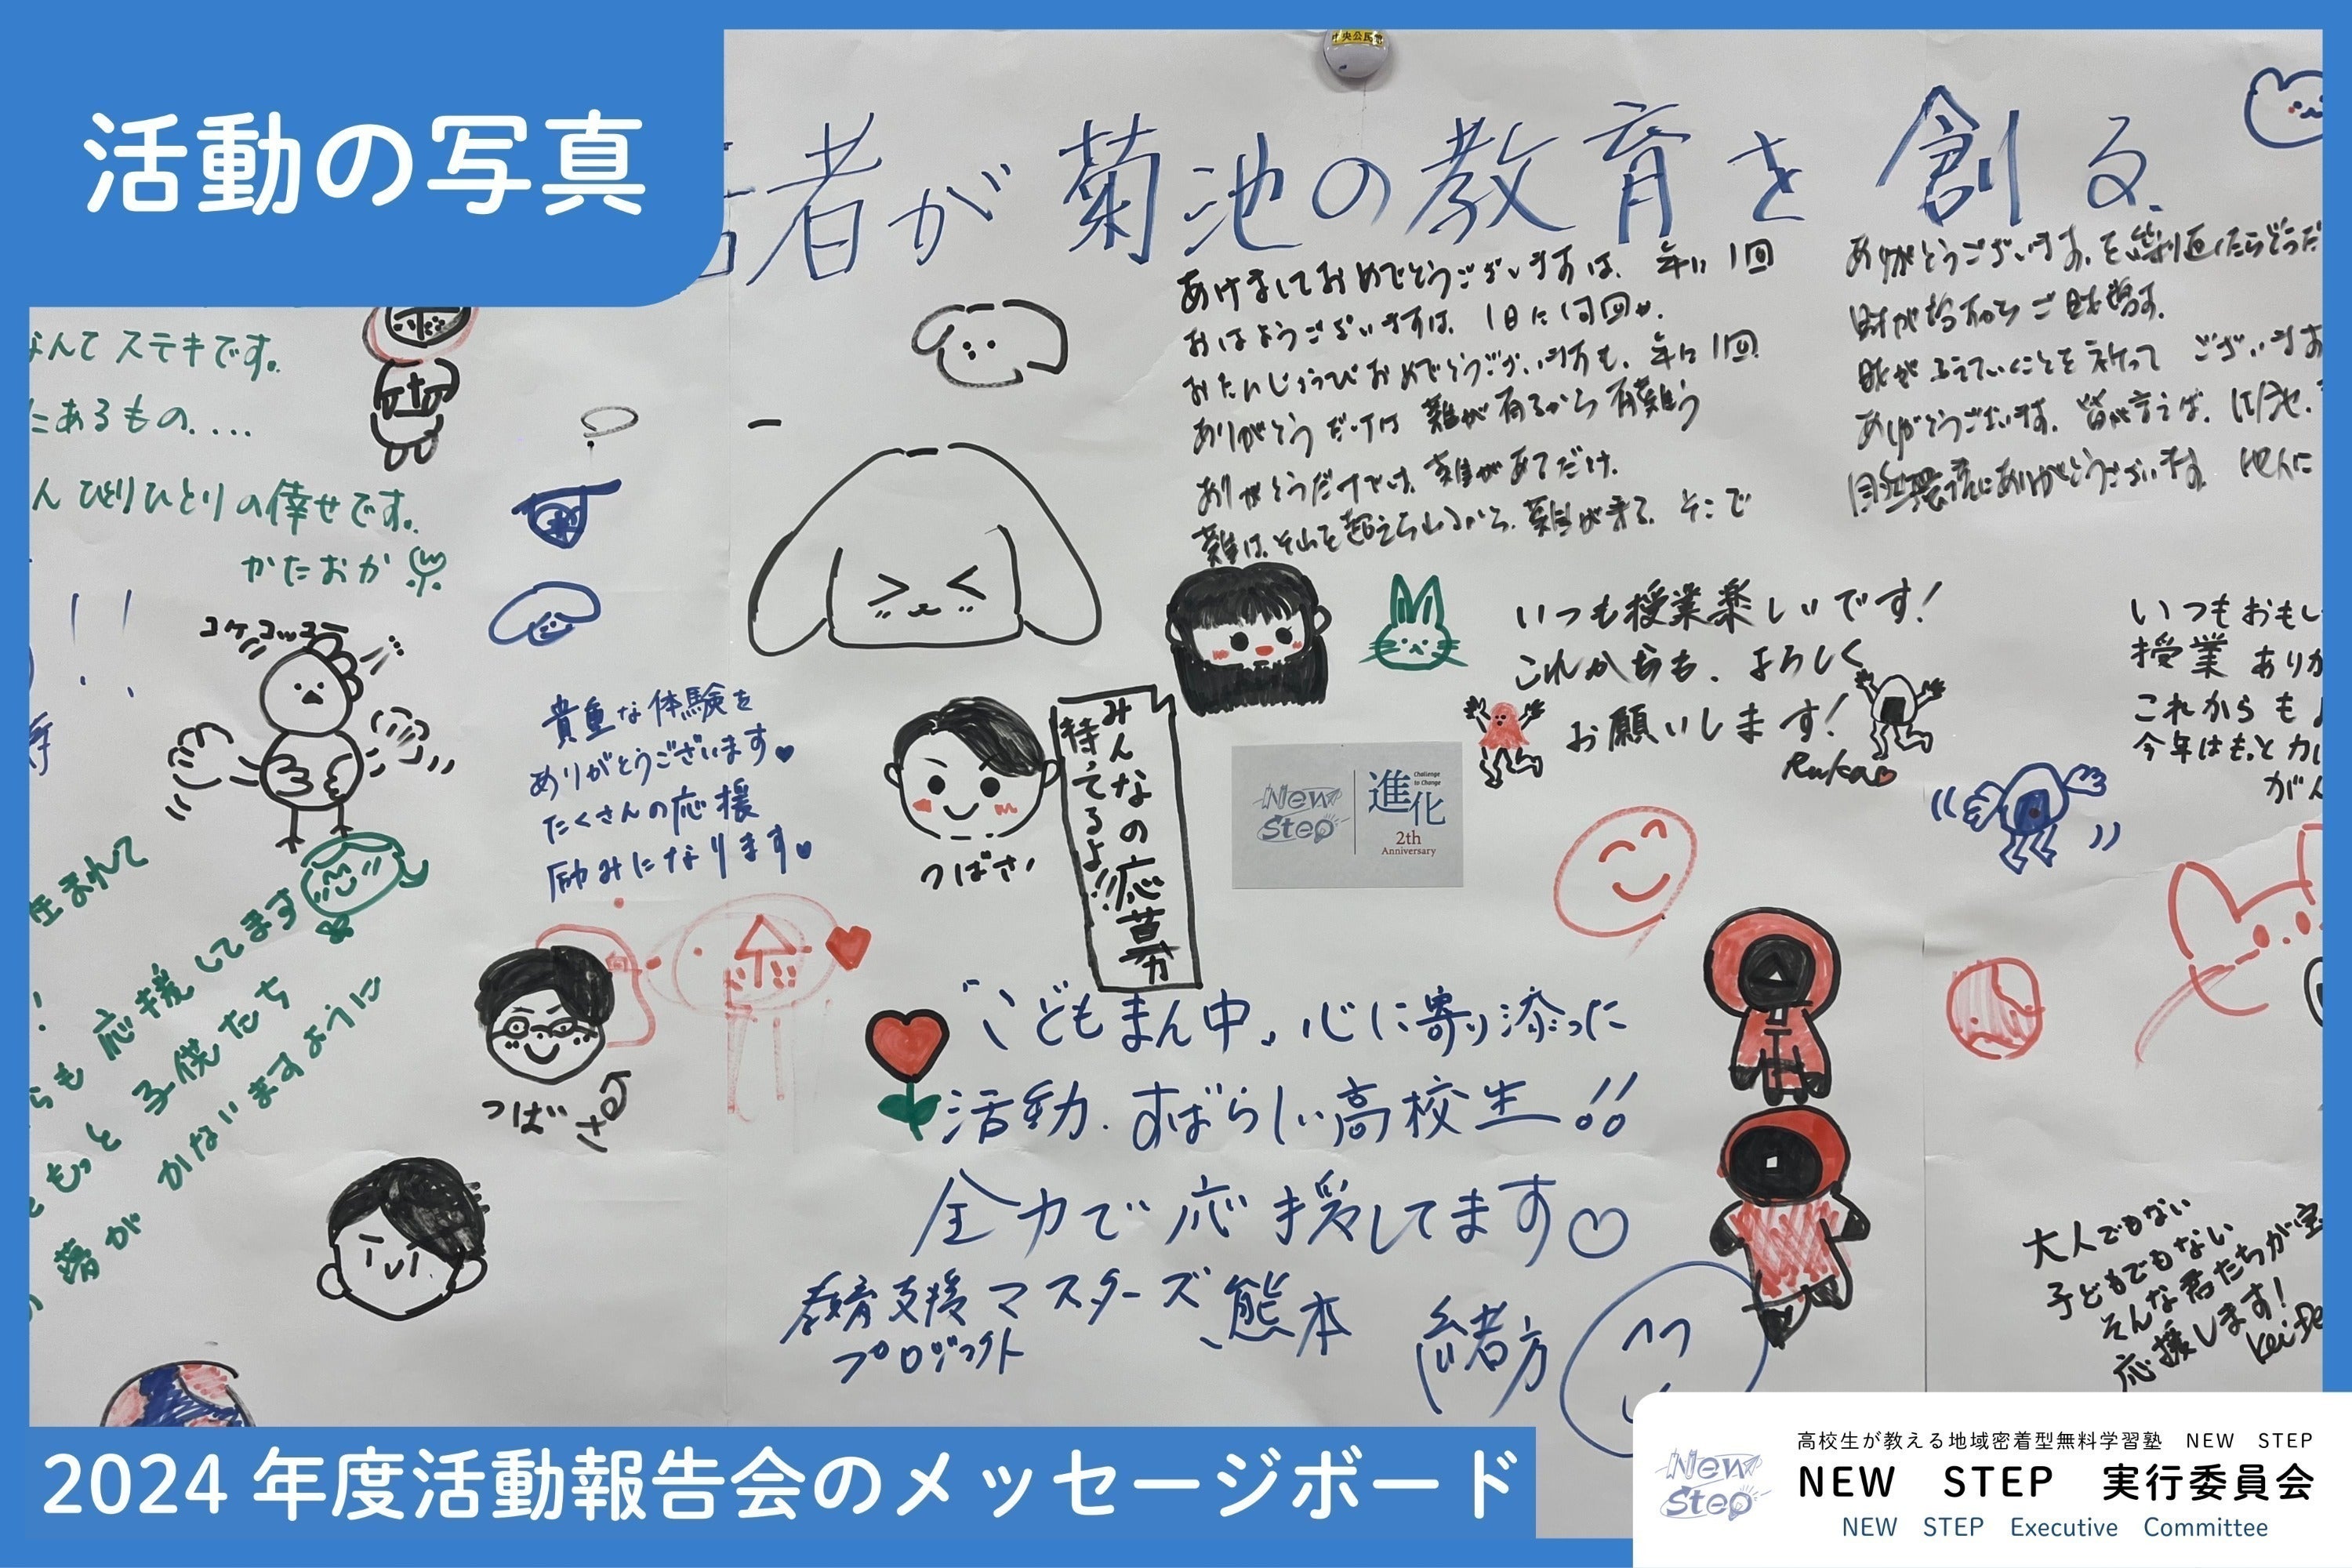 活動の写真
中央公民館
者が菊池の教育を創る.
なんて ステキです。
にあるもの....
ん ひとりひとりの倖せです。
かたおか
コケコッコー
あけましておめでとうございますは、年に1回
おはようございますは、1日に1回か、
おたんじょうびおめでとうございますも、年に1回
ありがとうだけは 難が有るから有難う
ありがとうだけでは、難があるだけ。
難は、それを超えられるから、難が来る、そこで
ありがとうございます。を繰り返したらどうだ
ございます
ありがとうございます。皆が言えば、
にありがとうございます。
いつも授業楽しいです!
これからも、よろしく
お願いします!
Ruka
いつもおもし
授業 ありが
これからもよ
今年はもっと
がん
貴重な体験を
ありがとうございます
たくさんの応援
励みになります
つばさ
みんなの応募
待ってるよ!!
New Step
進化
Challenge to Change
2th
Anniversary
生まれて
らも応援してます
もっと子供たち
夢が かないますように
つばさ
「こどもまん中」心に寄り添った
活動.すばらしい高校生!!
全力で応援してます♡
教育支援マスターズ熊本 緒方
プロジェクト
大人でもない
子どもでもない
そんな君たちが宝
応援します!
2024年度活動報告会のメッセージボード
New Step
高校生が教える地域密着型無料学習塾 NEW STEP
NEW STEP 実行委員会
NEW STEP Executive Committee